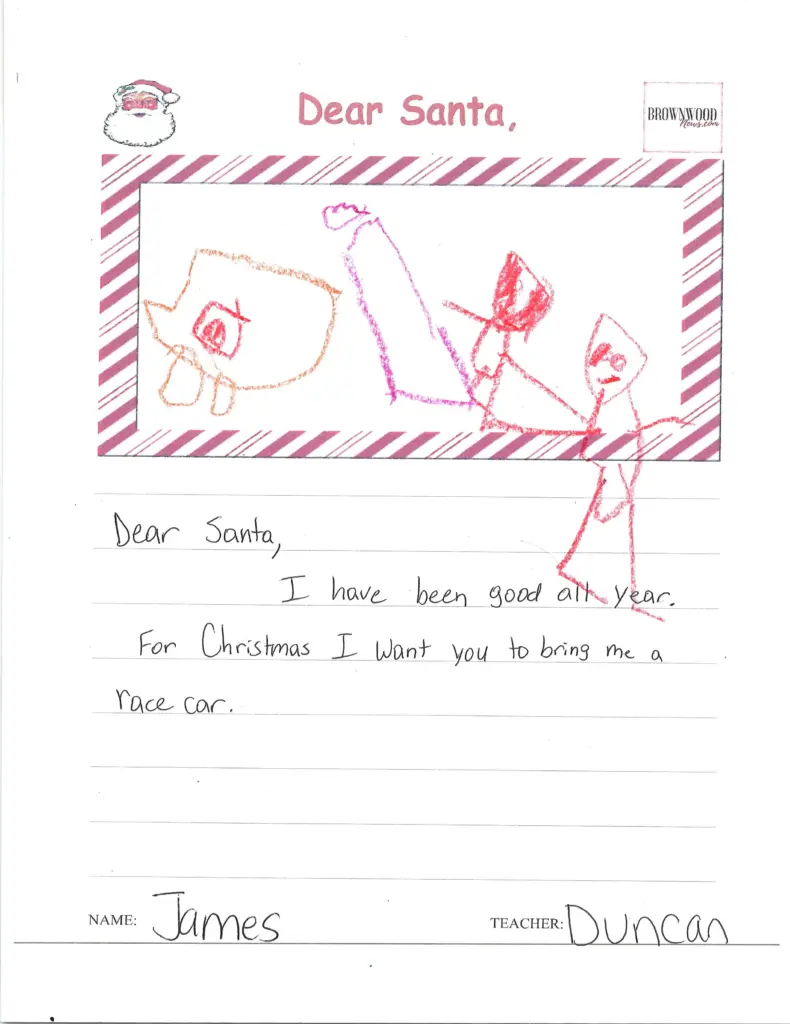 Dear Santa,
BROWNWOOD
News.com
Dear Santa,
I have been good all year.
For Christmas I want you to bring me a
race car.
NAME: James TEACHER: Duncan